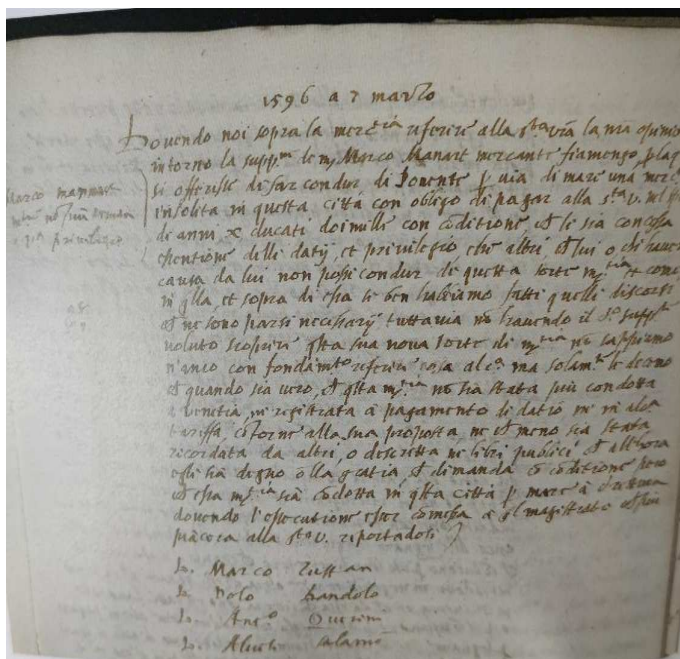 1596 a 7 marzo
Dovendo noi sopra la mercia referire alla sta via la nra opinio
intorno la suppne de mr Marco Manart mercante fiamengo, p la
si offerisse di far condur di Ponente p via di mare una merc
insolita in questa città con obligo di pagar alla sta v. nel
de anni x ducati doi mille con coditione, che le sia concessa
essentione delli datij, et privilegio che altri, che lui o chi haver
causa da lui non possi condur de questa sorte mtia et come
in qlla, et sopra di essa se ben habbiamo fatti quelli discorsi
che ne sono parsi necessarij tuttavia no havendo il so suppte
voluto scoprire qsta sua nova sorte di mtia no sappiamo
n'anco con fondamto referire cosa alca ma solamte le decemo
che quando sia vero, che qsta mtia no sia stata più condotta
a venetia, ne registrata a pagamento di datio ne in alca
tariffa, coforme alla sua proposta, ne che meno sia stata
ricordata da altri, o descritta ne libri publici che all'hora
egli sia degno della gratia che dimanda co coditione pero
che essa mtia sia codotta in qsta città p mare a
dovendo l'essecutione esser comessa a ql magistrato che più
piacera alla sta v. reportadosi
Marco mannart
privilegio
Jo. Marco Zustian
Jo. Polo Gandolo
Jo. Anto Querini
Jo. Alvise Salamo